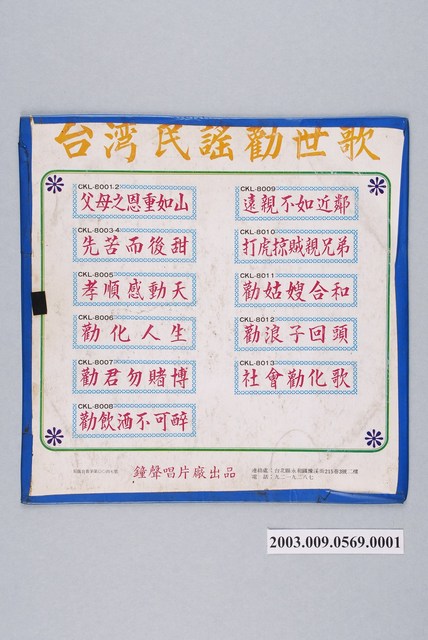 台湾民謠勸世歌
CKL-8001.2
父母之恩重如山
CKL-8003-4
先苦而後甜
CKL-8005
孝順感動天
CKL-8006
勸化人生
CKL-8007
勸君勿賭博
CKL-8008
勸飲酒不可醉
CKL-8009
遠親不如近鄰
CKL-8010
打虎掠賊親兄弟
CKL-8011
勸姑嫂合和
CKL-8012
勸浪子回頭
CKL-8013
社會勸化歌
鐘聲唱片廠出品
連絡處：台北縣永和鎮豫溪街215巷3號二樓
電話：九二一九二六七
2003.009.0569.0001